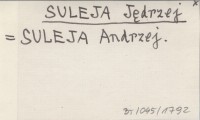 SULEJA Jędrzej
= SULEJA Andrzej.
B: /045/1792